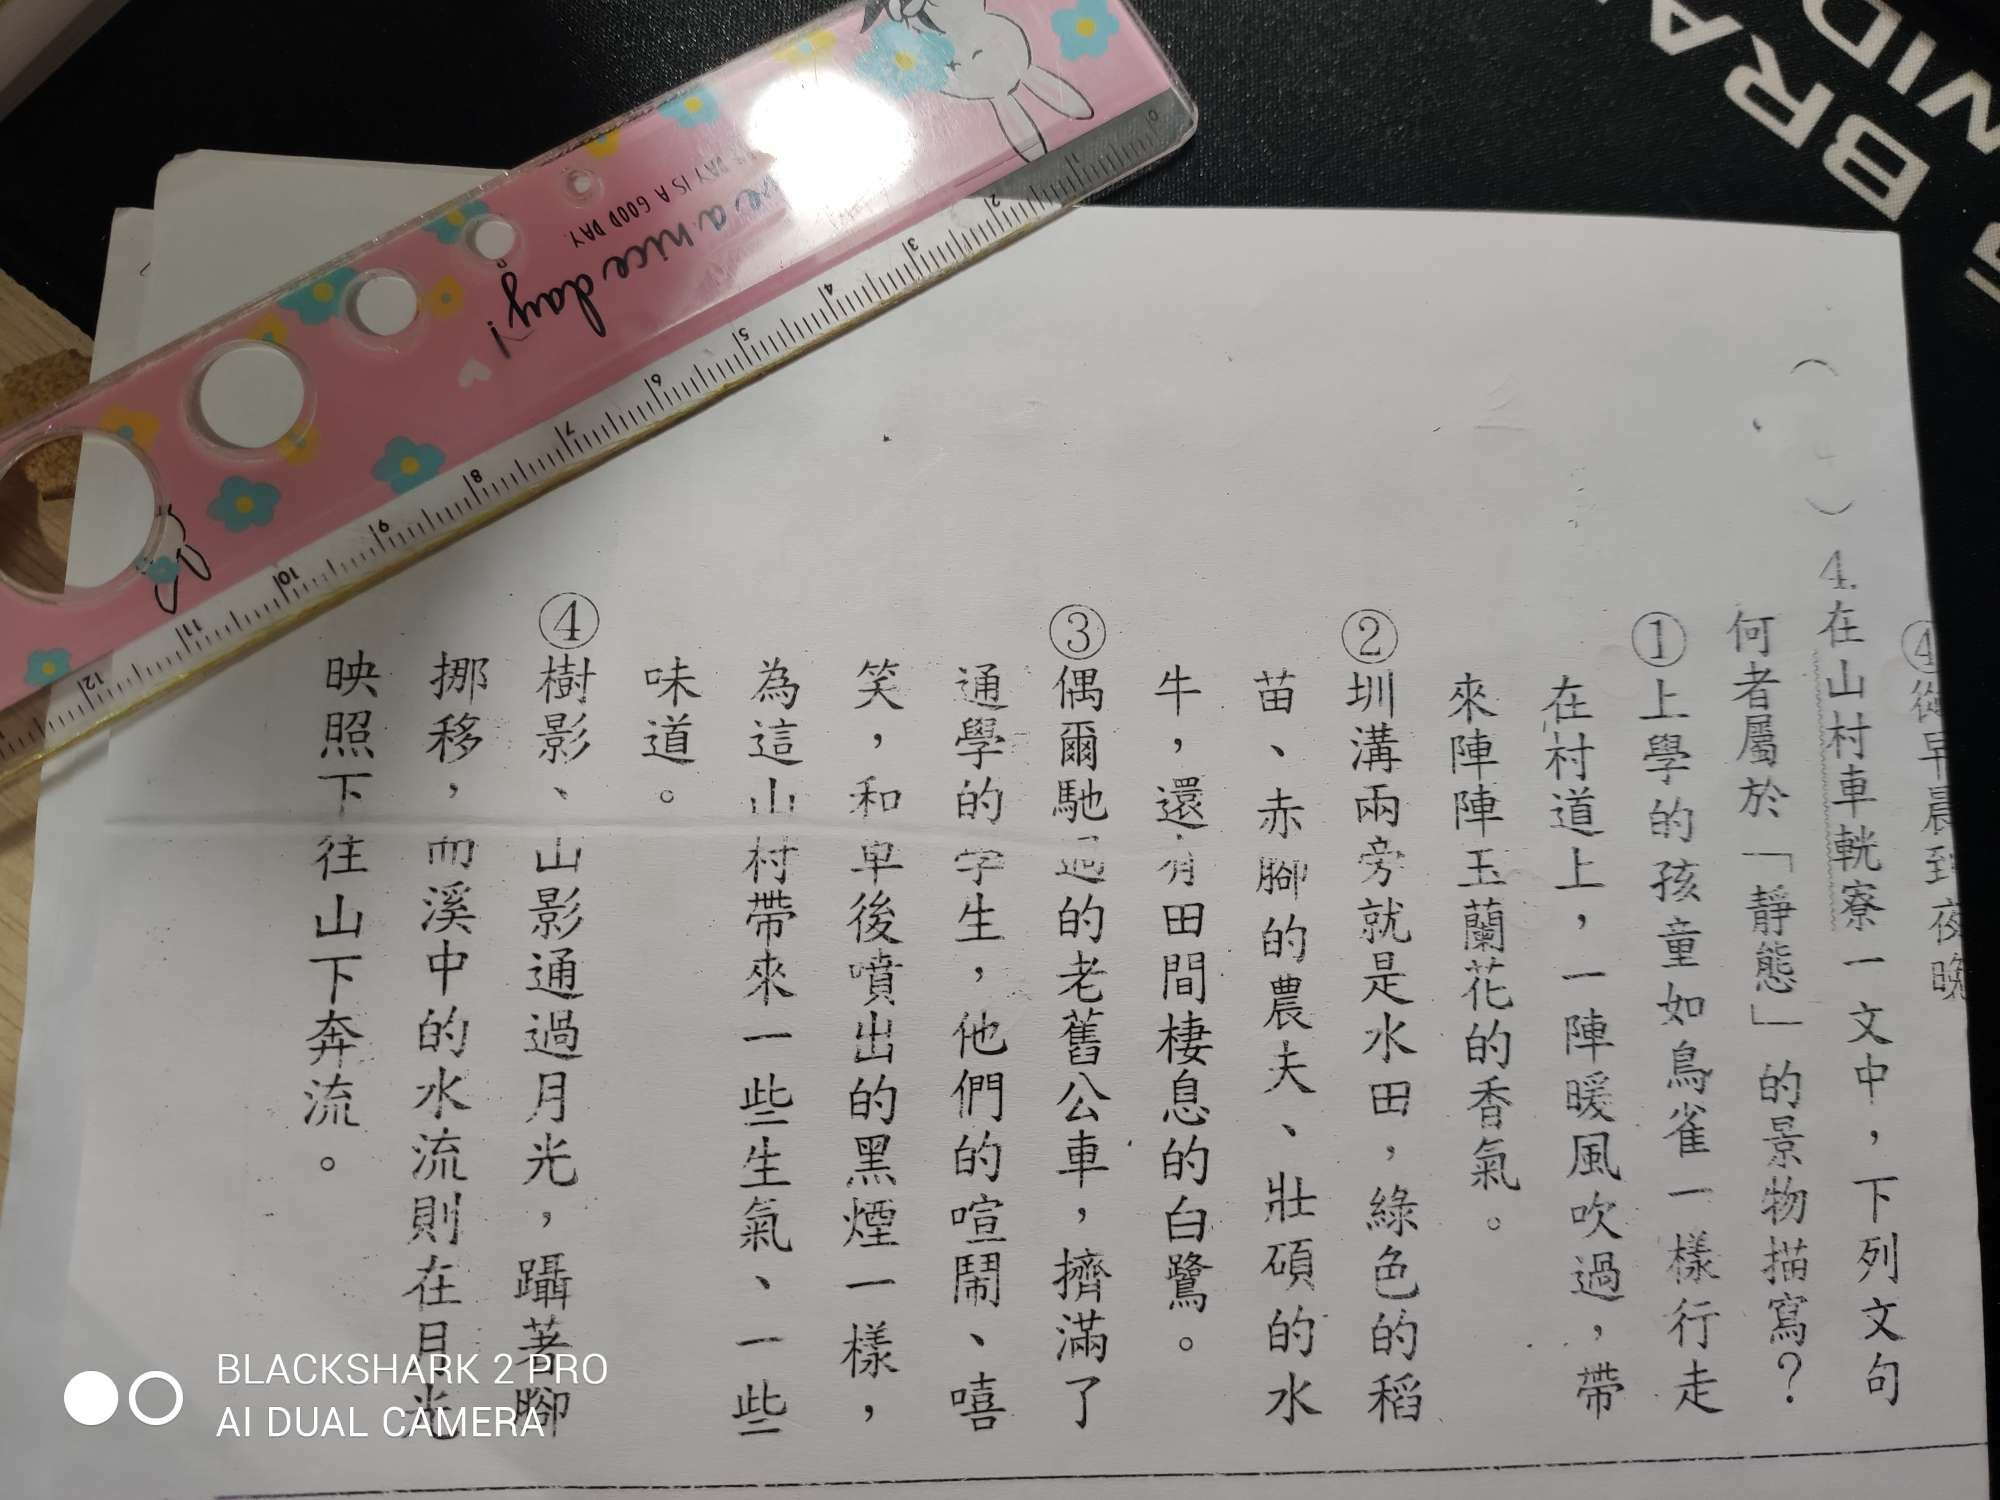 ④從早晨到夜晚
( )4.在山村車輄寮一文中，下列文句
何者屬於「靜態」的景物描寫？
①上學的孩童如鳥雀一樣行走
在村道上，一陣暖風吹過，帶
來陣陣玉蘭花的香氣。
②圳溝兩旁就是水田，綠色的稻
苗、赤腳的農夫、壯碩的水
牛，還有田間棲息的白鷺。
③偶爾馳過的老舊公車，擠滿了
通學的學生，他們的喧鬧、嘻
笑，和車後噴出的黑煙一樣，
為這山村帶來一些生氣、一些
味道。
④樹影、山影通過月光，躡著腳
挪移，而溪中的水流則在月光
映照下往山下奔流。
have a nice day!
DAY IS A GOOD DAY
2 3 4 5 6 7 8 9 10 11 12
BRA
VID
BLACKSHARK 2 PRO
AI DUAL CAMERA